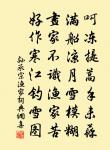 呵冻提蒿手未苏
满船凉月雪模糊
画家不识渔家苦
好作寒江钓雪图
孙承宗渔家词典缃书